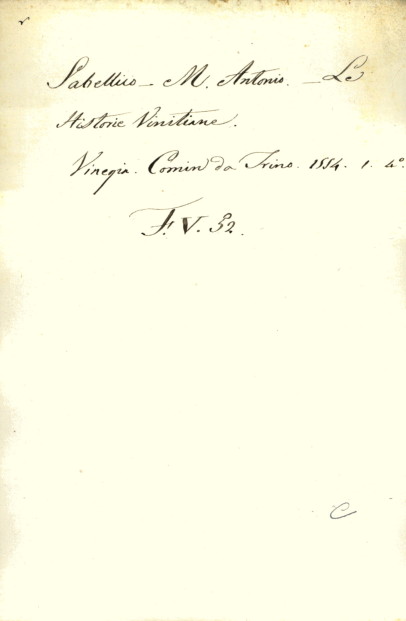 Sabellico - M. Antonio. - Le
Historie Vinitiane.
Vinegia. Comin da Trino. 1554. 1. 4°.
F. V. 52.
C